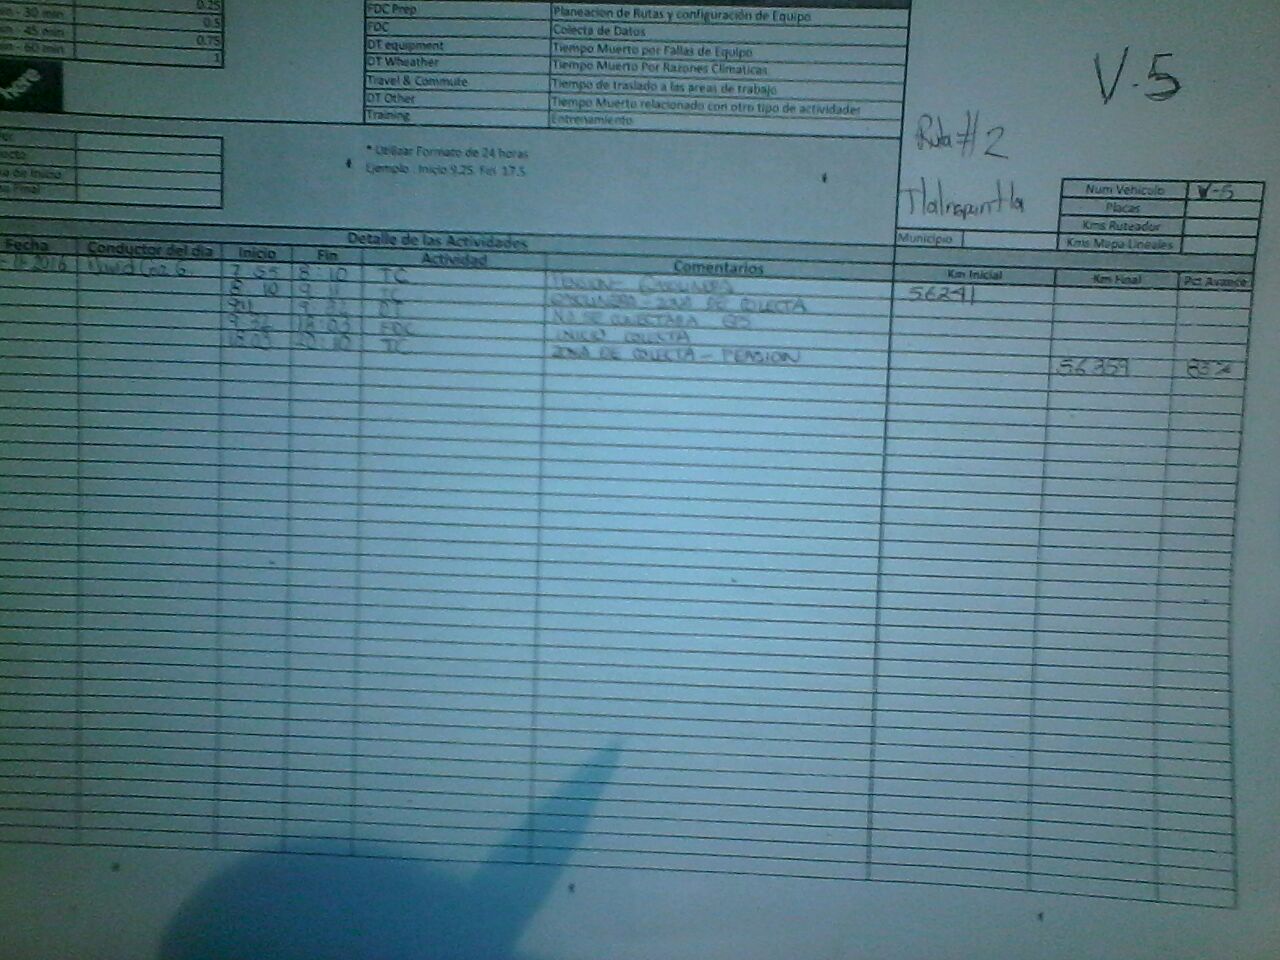 - 30 min 0.25
- 45 min 0.5
- 60 min 0.75
1
here
FDC Prep Planeacion de Rutas y configuración de Equipo
FDC Colecta de Datos
DT equipment Tiempo Muerto por Fallas de Equipo
DT Wheather Tiempo Muerto Por Razones Climaticas
Travel & Commute Tiempo de traslado a las areas de trabajo
DT Other Tiempo Muerto relacionado con otro tipo de actividades
Training Entrenamiento
V-5
Ruta #2
* Utilizar Formato de 24 horas
Ejemplo : Inicio 9.25 Fin 17.5
de Inicio
Final
Num Vehiculo V-5
Placas
Kms Ruteador
Municipio Kms Mapa Lineales
Detalle de las Actividades
Fecha Conductor del dia Inicio Fin Actividad Comentarios Km Inicial Km Final Pct Avance
2016 David 7 55 8:10 TC PENSION - 56241
8 10 9 11 TC - ZONA DE COLECTA
9 11 9 22 DT NO SE CONECTABA
9 22 18 03 FDC INICIO COLECTA
18 03 TC ZONA DE COLECTA - PENSION 56359